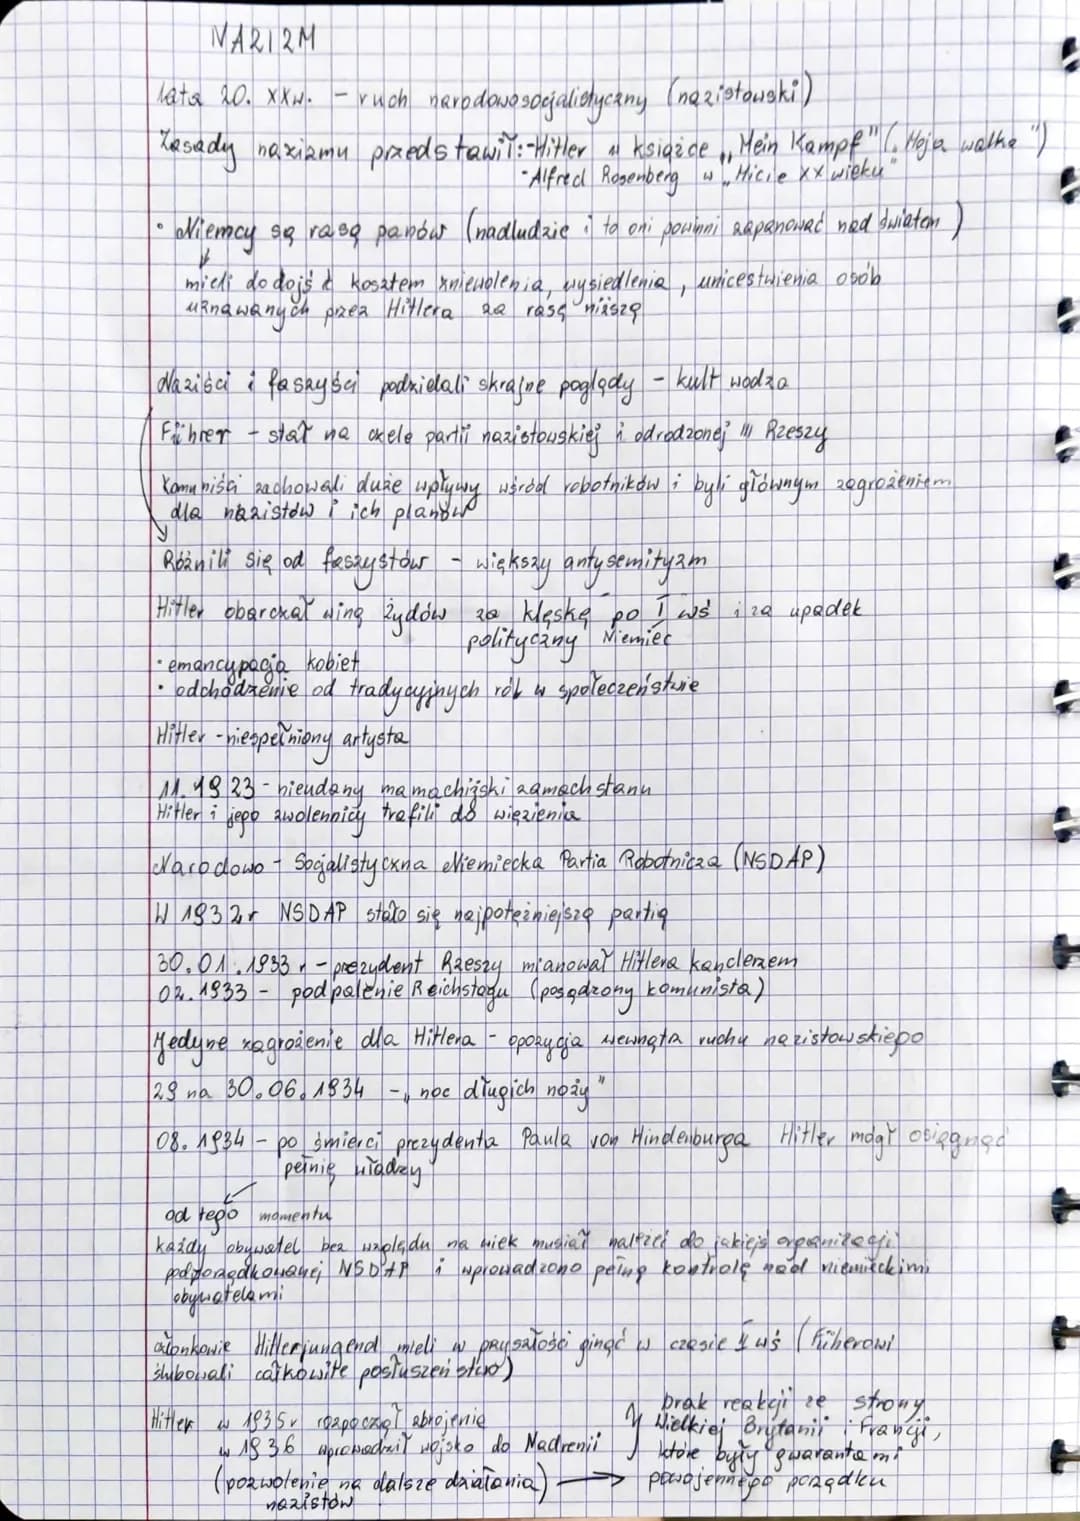 NAZIZM
lata 20. XXw. – ruch narodowosocjalistyczny (nazistowski)
Zasady nazizmu przedstawił: - Hitler w książce „Mein Kampf" („Moja walka")
- Alfred Rosenberg w „Micie XX wieku"
• Niemcy są rasą panów (nadludzie i to oni powinni zapanować nad światem)
mieli do dojść kosztem zniewolenia, wysiedlenia, unicestwienia osób
uznawanych przez Hitlera za rasę niższą
Naziści i faszyści podzielali skrajne poglądy – kult wodza
Führer – stał na czele partii nazistowskiej i odrodzonej III Rzeszy
Komuniści zachowali duże wpływy wśród robotników i byli głównym zagrożeniem
dla nazistów i ich planów
Różnili się od faszystów – większy antysemityzm
Hitler obarczał winą Żydów za klęskę po I wś i za upadek
polityczny Niemiec
• emancypacja kobiet
• odchodzenie od tradycyjnych ról w społeczeństwie
Hitler - niespełniony artysta
11.1923 - nieudany mamachijski zamach stanu
Hitler i jego zwolennicy trafili do więzienia
Narodowo - Socjalistyczna Niemiecka Partia Robotnicza (NSDAP)
W 1932r NSDAP stało się najpotężniejszą partią
30.01.1933 r – prezydent Rzeszy mianował Hitlera kanclerzem
02.1933 – podpalenie Reichstagu (posądzony komunista)
Jedyne zagrożenie dla Hitlera – opozycja wewnątrz ruchu nazistowskiego
29 na 30.06.1934 – „noc długich noży"
08.1934 – po śmierci prezydenta Paula von Hindenburga Hitler mógł osiągnąć
pełnię władzy
od tego momentu
każdy obywatel bez względu na wiek musiał należeć do jakiejś organizacji
podporządkowanej NSDAP i wprowadzono pełną kontrolę nad niemieckimi
obywatelami
członkowie Hitlerjungend mieli w przyszłości ginąć w czasie II wś (Füherowi
ślubowali całkowite posłuszeństwo)
Hitler w 1935r rozpoczął zbrojenia
w 1936 wprowadził wojsko do Nadrenii
(pozwolenie na dalsze działania)
nazistów
brak reakcji ze strony
Wielkiej Brytanii i Francji,
które były gwarantami
powojennego porządku